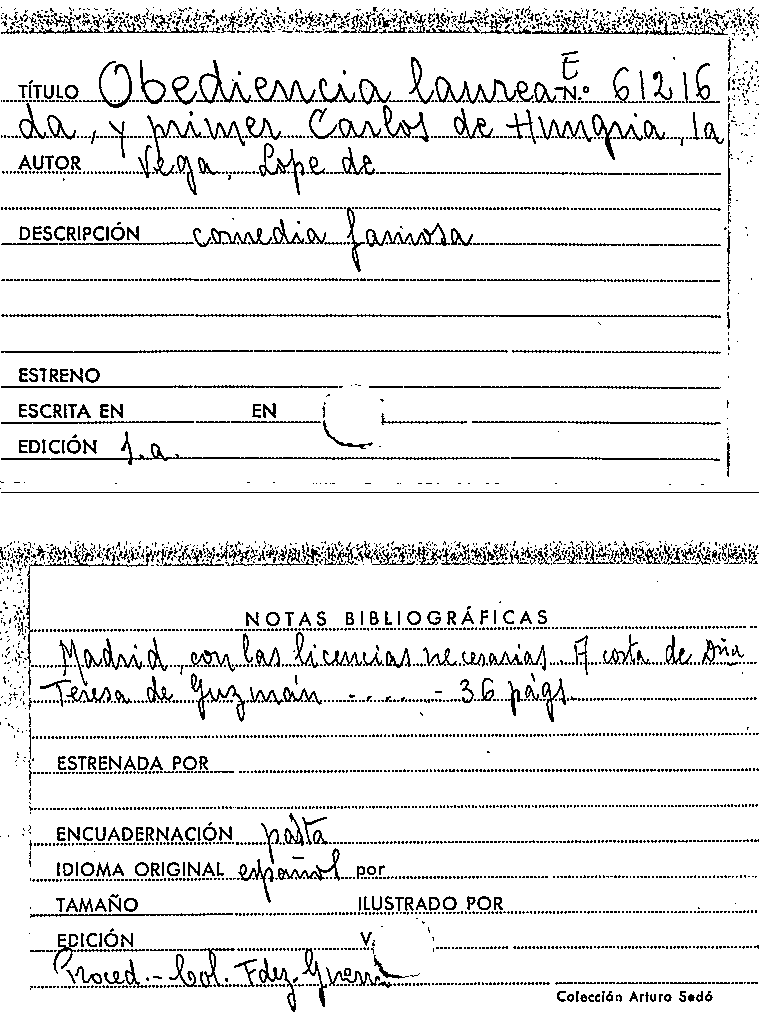 E
TÍTULO Obediencia laurea- N.º 61216
da, y primer Carlos de Hungria, la
AUTOR Vega, Lope de
DESCRIPCIÓN comedia famosa
ESTRENO
ESCRITA EN EN
EDICIÓN s.a.
NOTAS BIBLIOGRÁFICAS
Madrid, con las licencias necesarias. A costa de Dña
Teresa de Guzmán ..... - 36 págs.
ESTRENADA POR
ENCUADERNACIÓN pasta
IDIOMA ORIGINAL español por
TAMAÑO ILUSTRADO POR
EDICIÓN V.
Proced.- Col. Fdez-Guerra
Colección Arturo Sedó